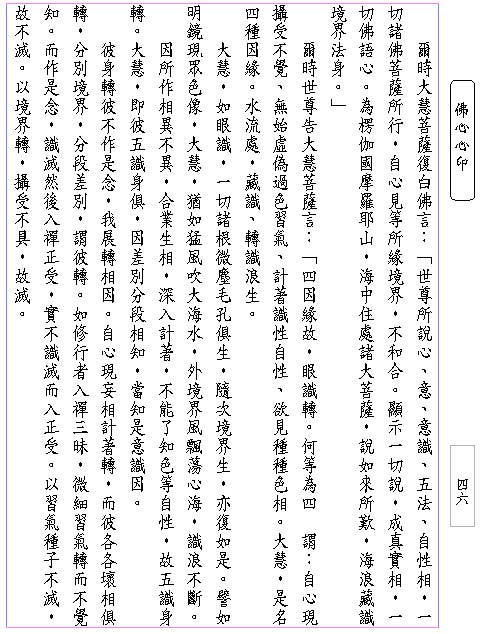 佛心心印
四六
爾時大慧菩薩復白佛言：「世尊所說心、意、意識、五法、自性相，一
切諸佛菩薩所行，自心見等所緣境界，不和合。顯示一切說，成真實相，一
切佛語心。為楞伽國摩羅耶山，海中住處諸大菩薩，說如來所歎，海浪藏識
境界法身。」
爾時世尊告大慧菩薩言：「四因緣故，眼識轉。何等為四　謂：自心現
攝受不覺、無始虛偽過色習氣、計著識性自性、欲見種種色相。大慧，是名
四種因緣。水流處，藏識、轉識浪生。
大慧，如眼識，一切諸根微塵毛孔俱生，隨次境界生，亦復如是。譬如
明鏡現眾色像，大慧，猶如猛風吹大海水，外境界風飄蕩心海，識浪不斷。
因所作相異不異，合業生相，深入計著，不能了知色等自性，故五識身
轉。大慧，即彼五識身俱，因差別分段相知，當知是意識因。
彼身轉彼不作是念，我展轉相因。自心現妄相計著轉，而彼各各壞相俱
轉，分別境界，分段差別，謂彼轉。如修行者入禪三昧，微細習氣轉而不覺
知。而作是念，識滅然後入禪正受，實不識滅而入正受。以習氣種子不滅，
故不滅。以境界轉，攝受不具，故滅。